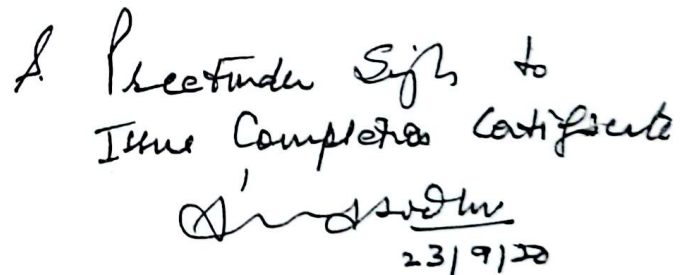 S. Preetinder Singh to
Issue Completion Certificate
23/9/20